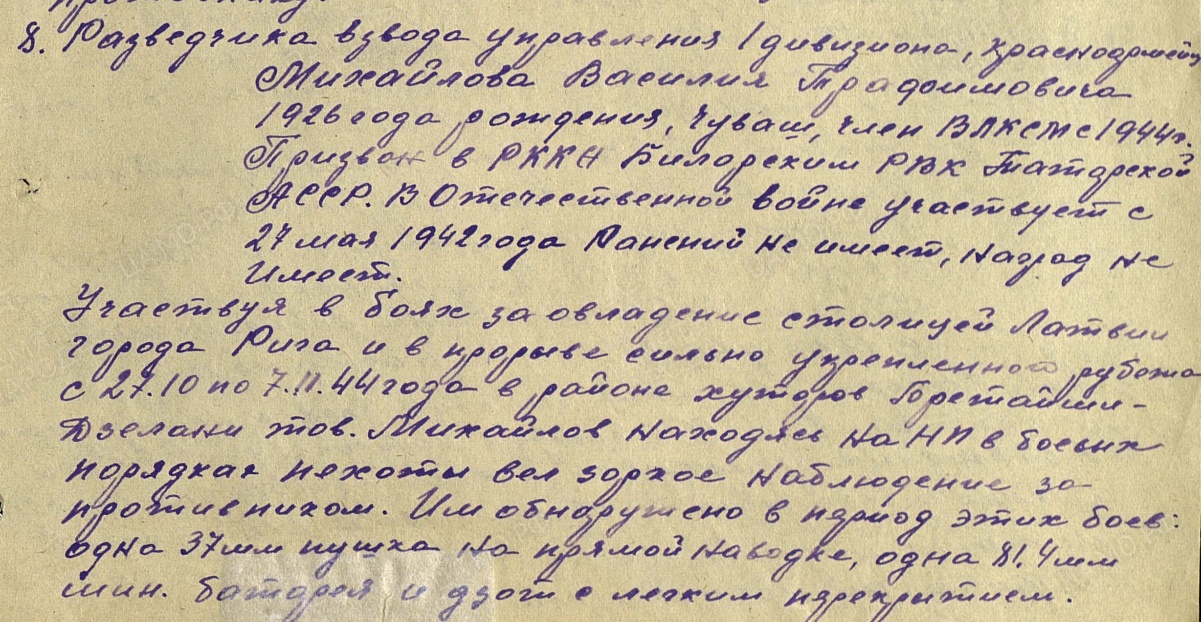 противнику.
8. Разведчика взвода управления 1 дивизиона, красноармейц
Михайлова Василия Трафимовича
1926 года рождения, чуваш, член ВЛКСМ с 1944г.
Призван в РККА Билярским РВК Татарской
АССР. В Отечественной войне участвует с
27 мая 1942 года Ранений не имеет, наград не
имеет.
Участвуя в боях за овладение столицей Латвии
города Рига и в прорыве сильно укрепленного рубежа
с 27.10 по 7.11.44 года в районе хуторов
Дзелани тов. Михайлов находясь на НП в боевых
порядках пехоты вел зоркое наблюдение за
противником. Им обнаружено в период этих боев:
одна 37мм пушка на прямой наводке, одна 81,4мм
мин. батарея и дзот с легким перекрытием.